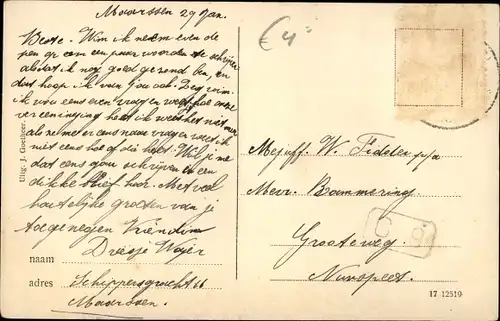 Maarssen 29 Jan.
Beste Wim ik neem even de
pen op om een paar woorden te schrijven
alsdat ik nog goed gezond ben, en
dat hoop ik van jou ook. Zeg wim.
ik wou eens even vragen weet hoe onze
vereeniging heet ik weet het niet meer
als ze met er eens naar vragen weet ik
niet eens hoe of die heet. Wel je me
dat eens gauw schrijven in een
dikke brief hoor. Met veel
hartelijke groeten van je
toegenegen Vriendin
Driesje
naam
adres Schippersgracht
Maarssen
Uitg. J. Goetheer
€ 4
Mejuff. W. Fidder p/a
Mevr. Bammering
Grooteweg
Nunspeet.
17 12519